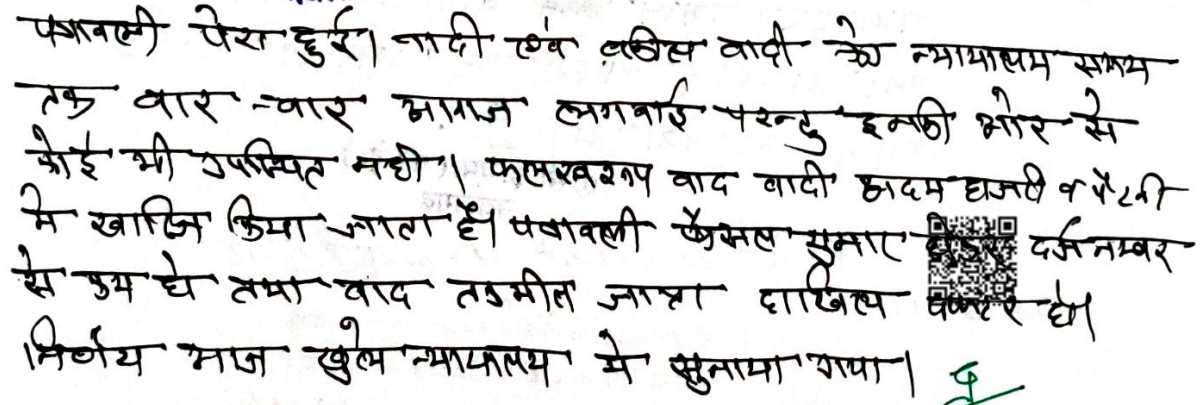 पत्रावली पेश हुई। वादी एवं वकील वादी को न्यायालय समय
तक बार-बार आवाज लगवाई परन्तु इनकी ओर से
कोई भी उपस्थित नही। फलस्वरूप वाद वादी अदम हाजरी व पैरवी
मे खारिज किया जाता है। पत्रावली फैसल शुमार होकर दर्ज नम्बर
से कम हो तथा बाद तकमील जाब्ता दाखिल दफ्तर हो।
निर्णय आज खुले न्यायालय मे सुनाया गया।